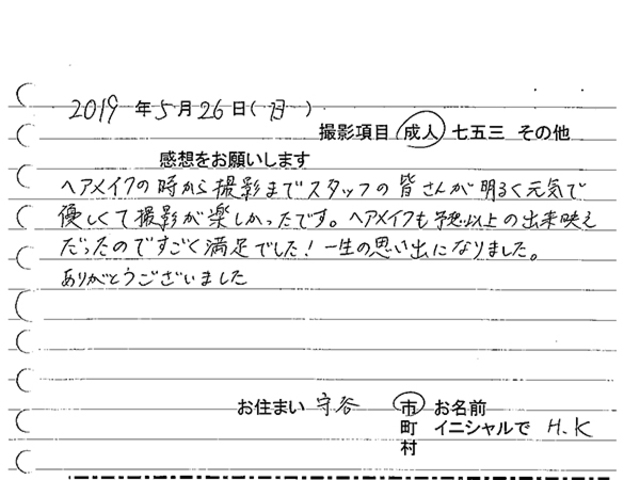 2019年5月26日(日)
撮影項目 成人 七五三 その他
感想をお願いします
ヘアメイクの時から撮影までスタッフの皆さんが明るく元気で
優しくて撮影が楽しかったです。ヘアメイクも予想以上の出来映え
だったのですごく満足でした！一生の思い出になりました。
ありがとうございました
お住まい 守谷 市 お名前
町 イニシャルで H.K
村